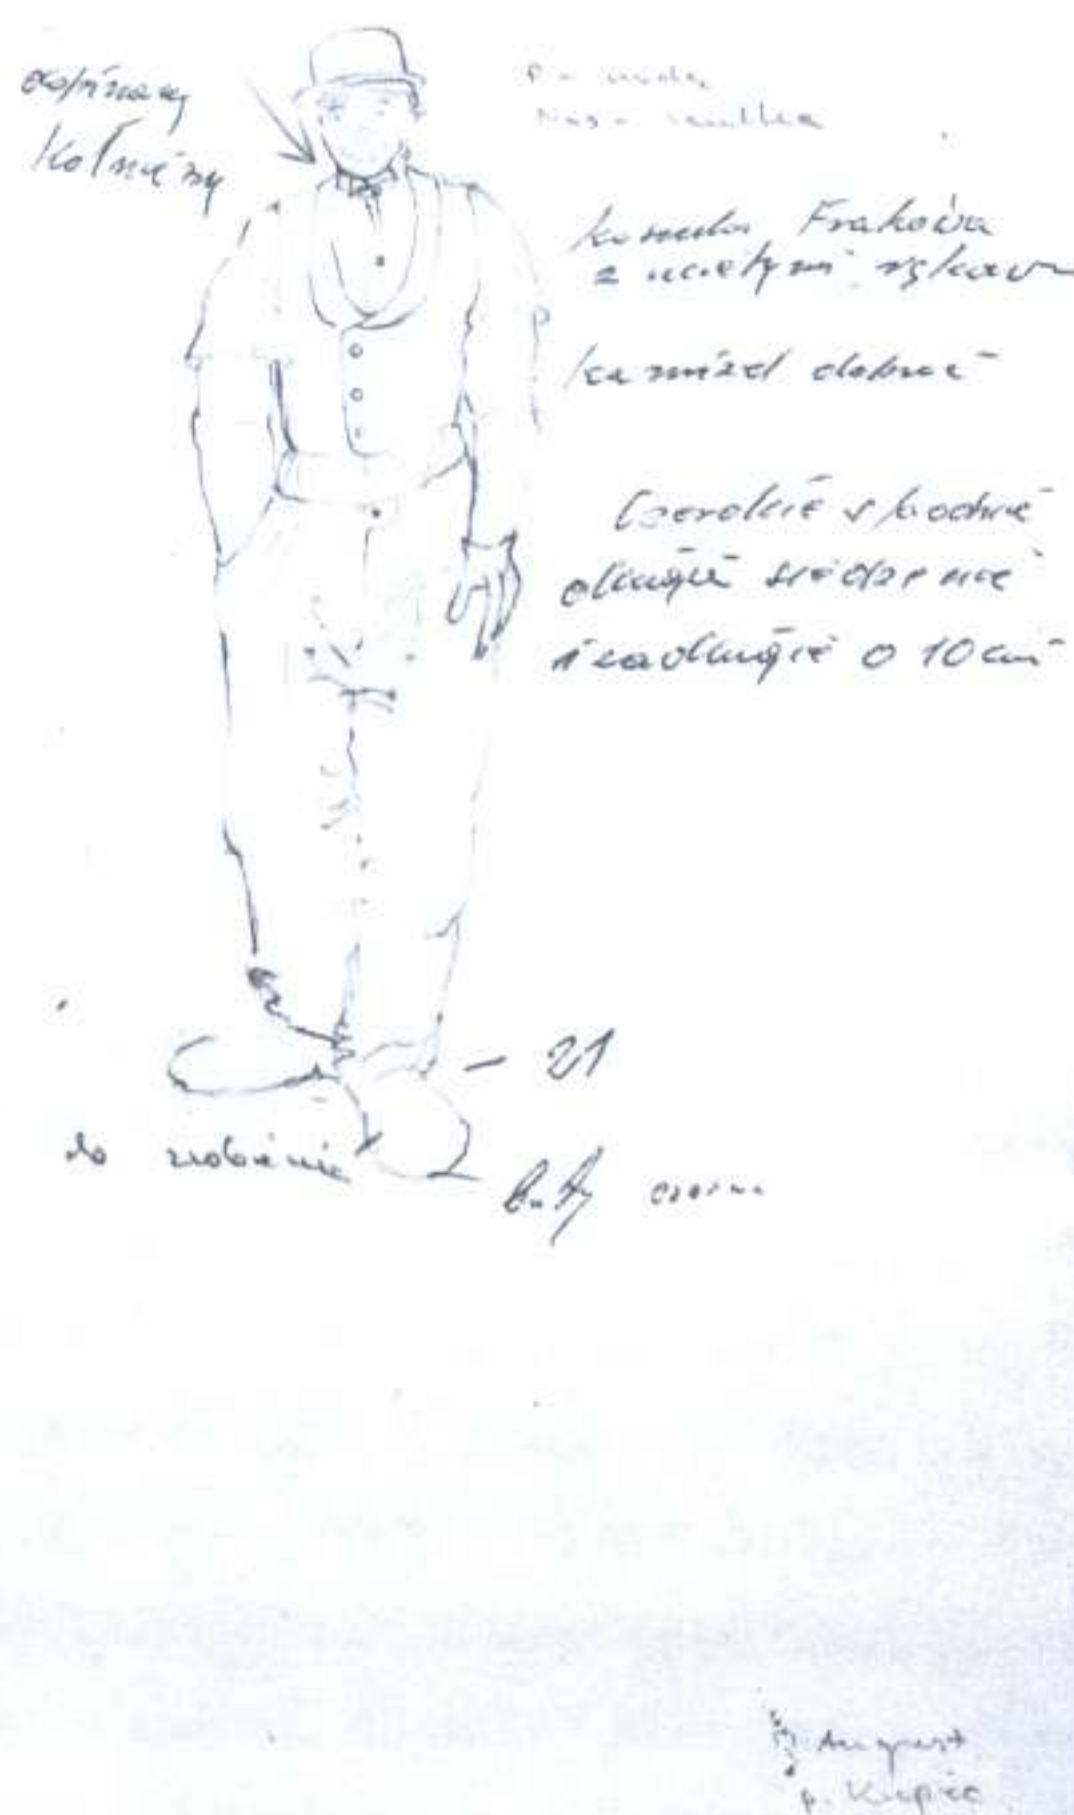 dopinany
Kołnierzy
koszula Frakowa
z uciętymi rękaw
kamizel dobrać
szerokie spodnie
długie siedzenie
i za długie o 10 cm
- 21
do zrobienia
buty czarne
August
p. Kupiec